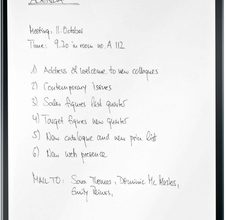 Agenda
Meeting: 11. October
Time: 9.30 in room no. A 112
1) Address of welcome to new collegues
2) Contemporary Issues
3) Sales figures last quarter
4) Target figures new quarter
5) New catalogue and new price list
6) New web presence
MAIL TO: Sara Thomas, Dominic Mc
Emily